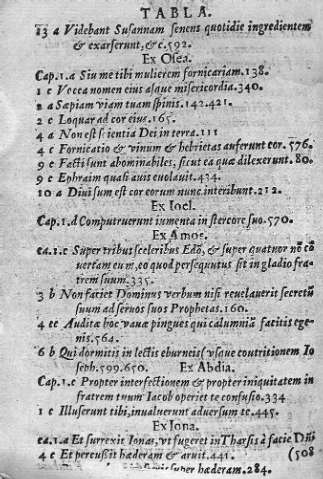 TABLA.
13 a Videbant Susannam senens quotidie ingredientem
& exarserunt, &c. 592.
Ex Osea.
Cap. 1. a Su me tibi mulierem fornicariam. 138.
1 c Vocca nomen eius absque misericordia. 340.
2 a Sæpiam viam tuam spinis. 142. 421.
2 c Loquar ad cor eius. 165.
4 a Non est scientia Dei in terra. 111
4 c Fornicatio & vinum & hebrietas auferunt cor. 576.
9 c Facti sunt abominabiles, sicut ea quæ dilexerunt. 80.
9 c Ephraim quasi auis euolauit. 434.
10 a Diuisum est cor eorum nunc interibunt. 212.
Ex Ioel.
Cap. 1. d Computruerunt iumenta in stercore suo. 570.
Ex Amos.
ca. 1. c Super tribus sceleribus Edō, & super quatuor nō cō
uertam eum, eo quod persequutus sit in gladio fra-
trem suum. 335.
3 b Non faciet Dominus verbum nisi reuelauerit secretū
suum ad seruos suos Prophetas. 160.
4 cc Audite hoc vaccæ pingues qui calumniā facitis ege-
nis. 564.
6 b Qui dormitis in lectis eburneis (vsque contritionem Io
seph. 599. 650. Ex Abdia.
Cap. 1. c Propter interfectionem & propter iniquitatem in
fratrem tuum Iacob operiet te confusio. 334
1 c Illuserunt tibi, inualuerunt aduersum te. 445.
Ex Iona.
ca. 1. a Et surrexit Ionas, vt fugeret in Tharsis à facie Dñi
4 c Et percußit hæderam & aruit. 441. (508
super hæderam. 284.